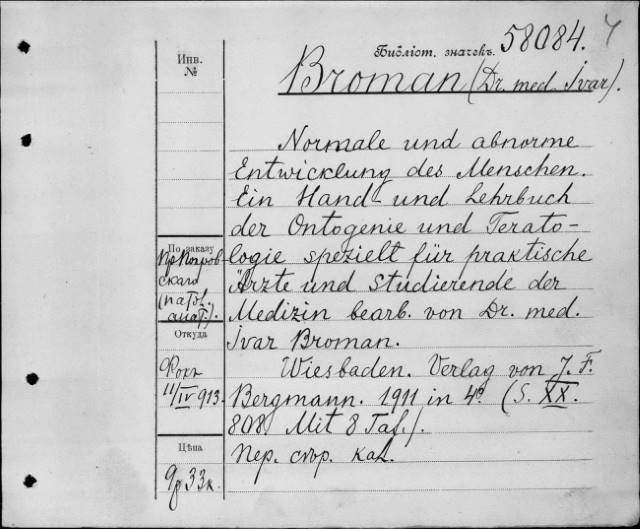 Библіот. значекъ. 58084.
Инв.
№
Broman (Dr. med. Ivar).
Normale und abnorme
Entwicklung des Menschen.
Ein Hand- und Lehrbuch
der Ontogenie und Terato-
logie speziell für praktische
Ärzte und Studierende der
Medizin bearb. von Dr. med.
Ivar Broman.
Wiesbaden. Verlag von J. F.
Bergmann. 1911 in 4º (S. XX.
808. Mit 8 Taf.).
Пер. стор. кал.
По заказу
скаго
(патол.
анат.).
Откуда
11/IV 913.
Цѣна
9р 33к